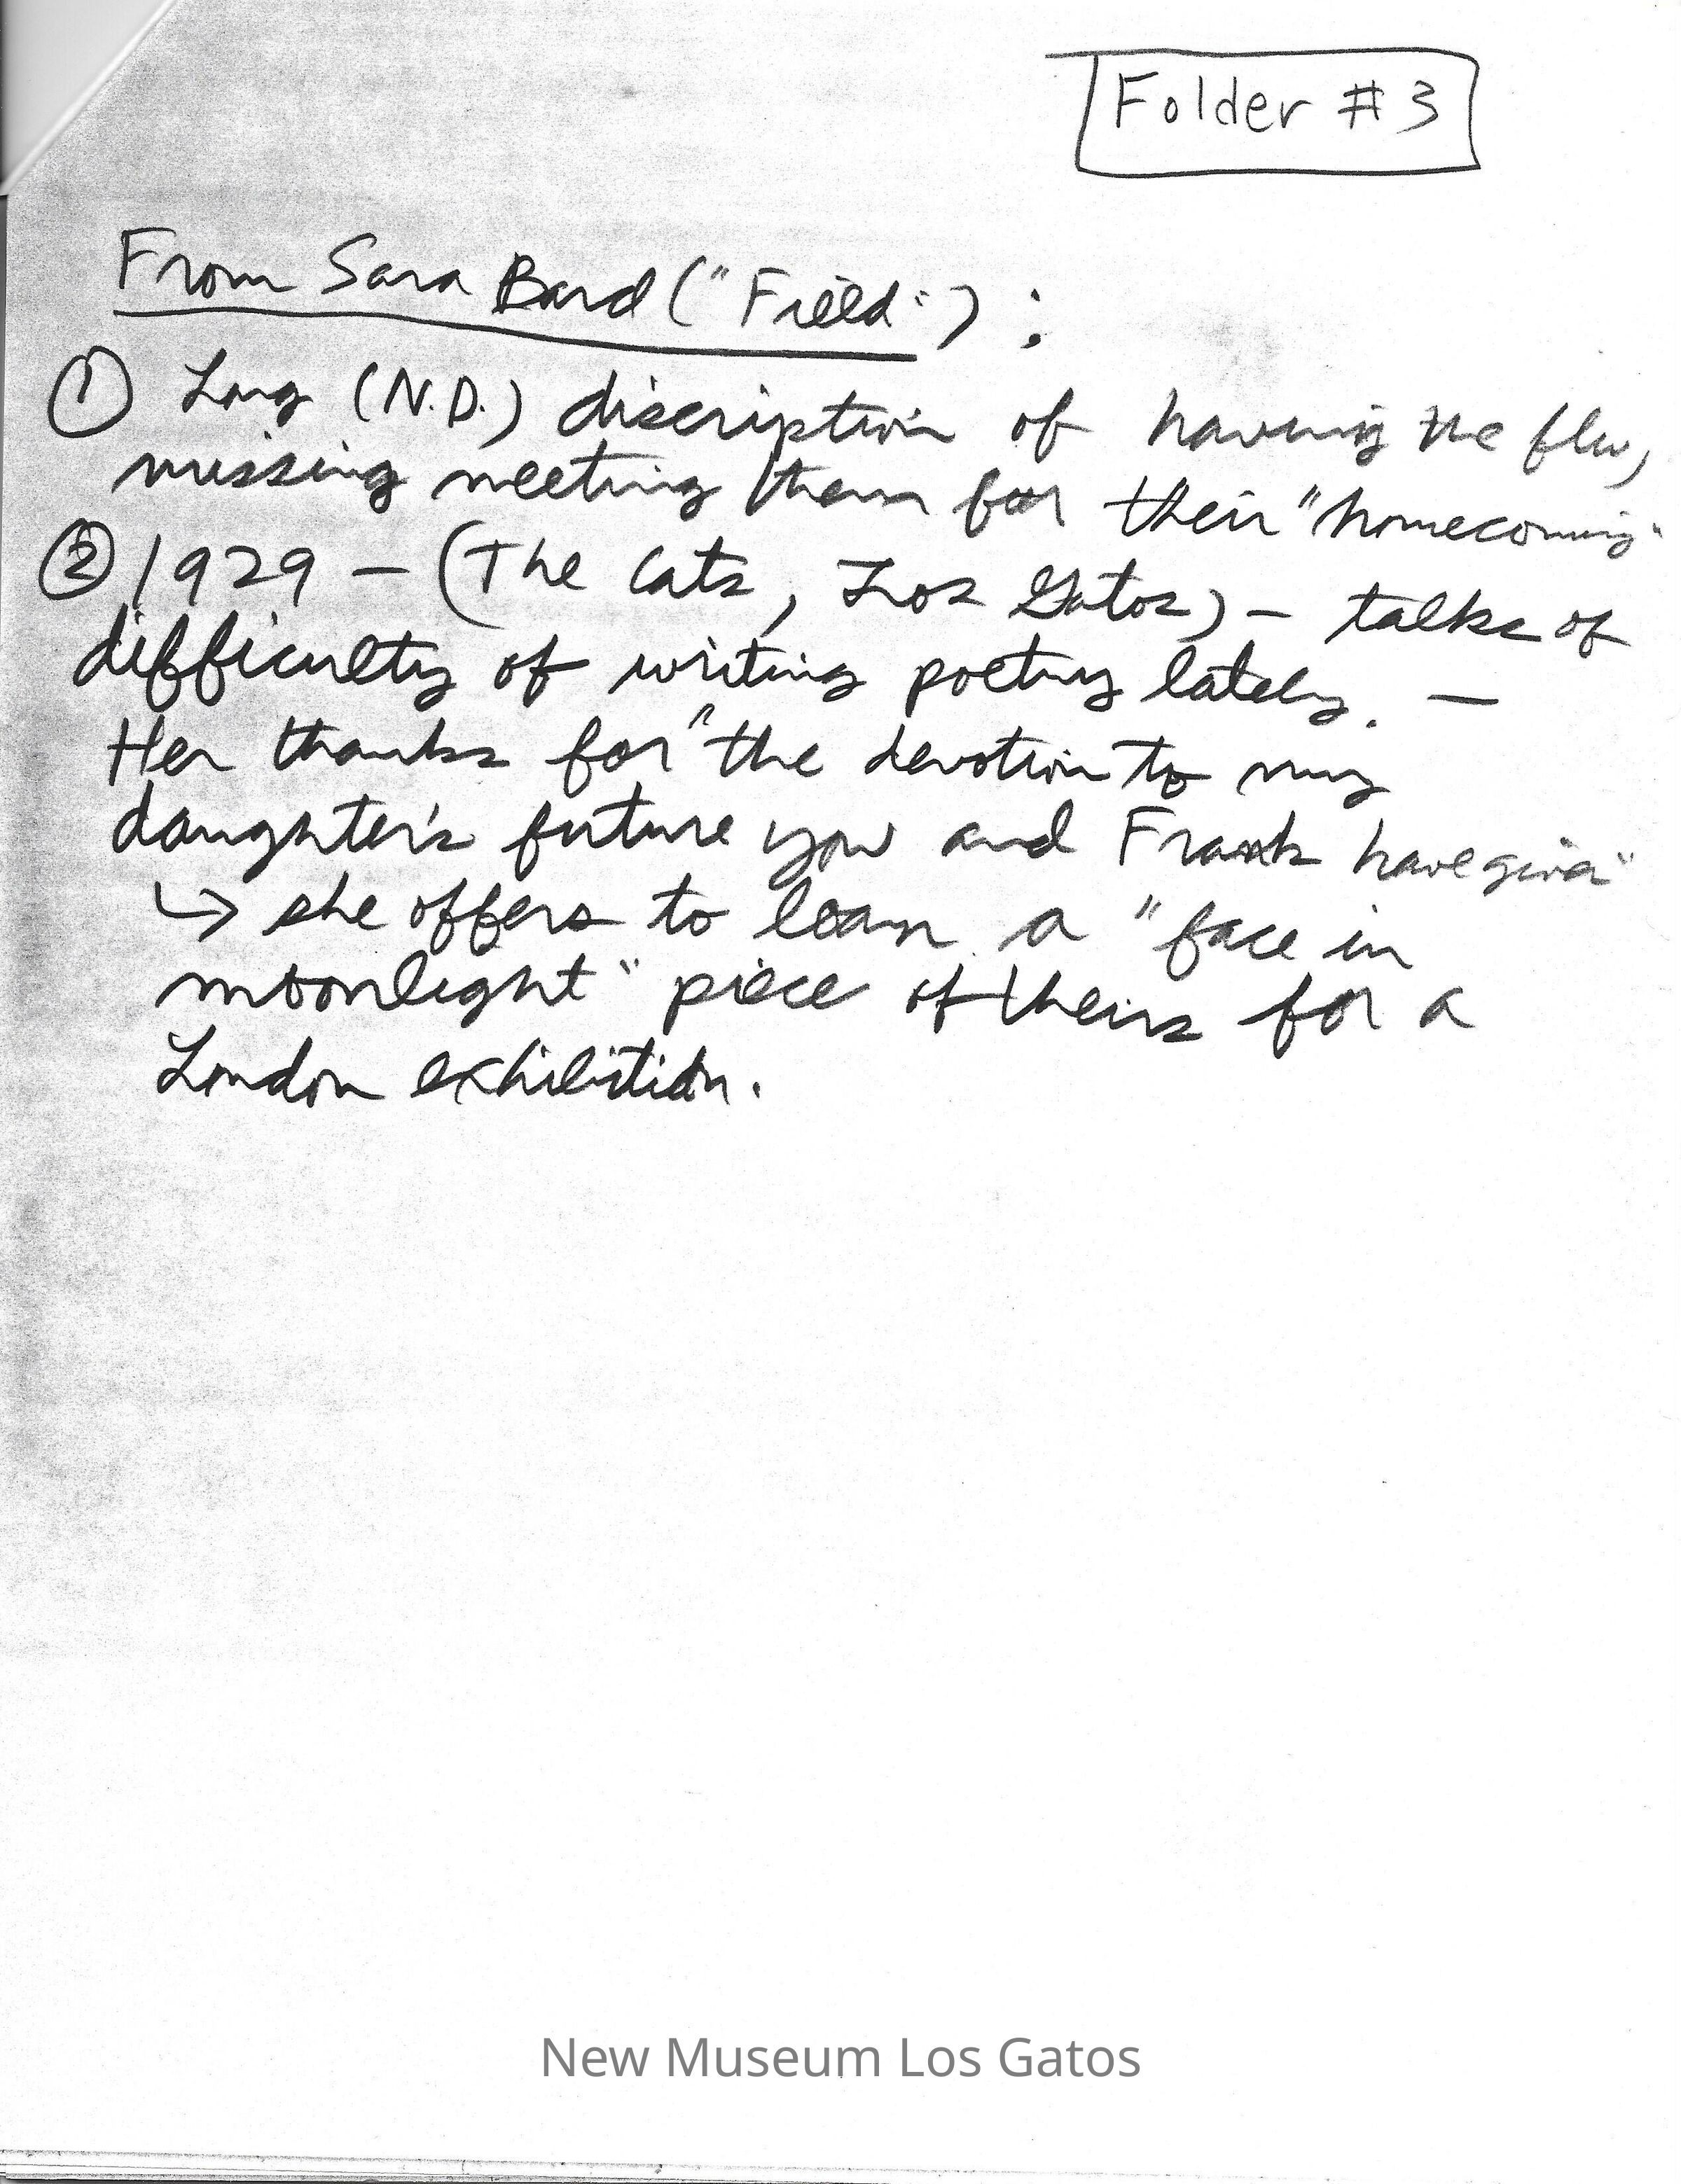 Folder #3
From Sara Bard ("Field"):
① Long (N.D.) discription of having the flu,
missing meeting them for their "homecoming"
② 1929 – (The Cats, Los Gatos) – talks of
difficulty of writing poetry lately. –
Her thanks for "the devotion to my
daughter's future you and Frank have given"
↳ she offers to loan a "face in
moonlight" piece of theirs for a
London exhibition.
New Museum Los Gatos